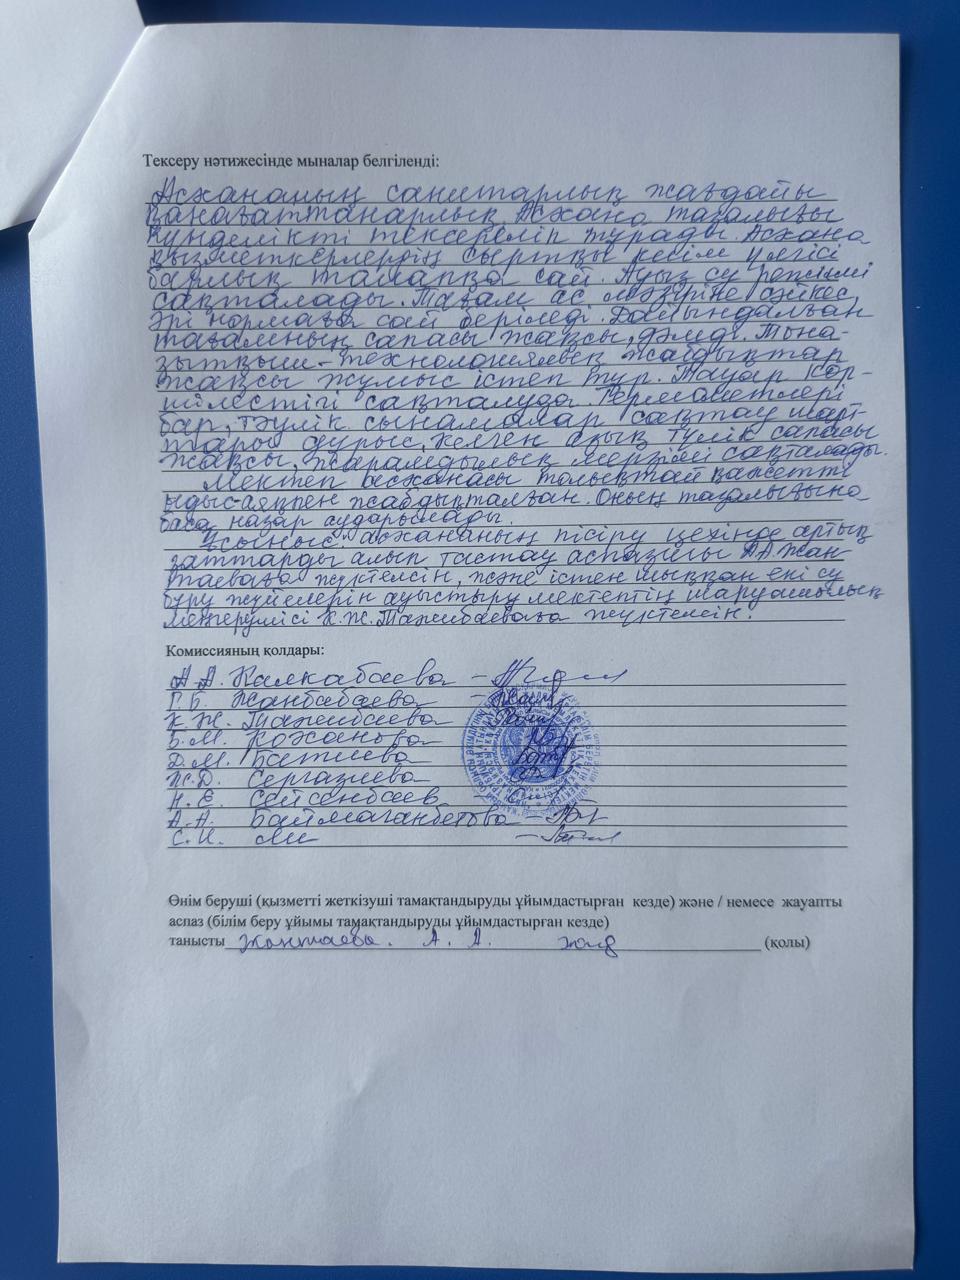 Тексеру нәтижесінде мыналар белгіленді:
Асхананың санитарлық жағдайы
қанағаттанарлық. Асхана тазалығы
күнделікті тексереліп тұрады. Асхана
қызметкерлердің сыртқы кейім үлгісі
барлық талапқа сай. Ауыз су режимі
сақталады. Тағам ас мәзіріне сәйкес
әрі нормаға сай беріледі. Дайындалған
тағамның сапасы жақсы, дәмді. Тоңа-
зытқыш-технологиялық жабдықтар
жақсы жұмыс істеп тұр. Тауар көр-
шілестігі сақталуда. Термометрлері
бар, тәулік сынамалар сақтау шарт-
тары дұрыс, келген азық түлік сапасы
жақсы, жарамдылық мерзімі сақталады.
Мектеп асханасы толықтай қажетті
ыдыс-аяқпен жабдықталған. Оның тазалығына
баса назар аударылады.
Ұсыныс: асхананың пісіру цехінде артық
заттарды алып тастау аспазшы А.А. Жан
таеваға жүктелсін, және істен шыққан екі су
бұру жүйелерін ауыстыру мектептің шаруашылық
меңгерушісі К.Ж. Тажибаеваға жүктелсін.
Комиссияның қолдары:
А.А. Калкабаева –
Г.Б. Жанбабаева –
К.Ж. Тажибаева
Б.М. Кожанова
Д.М. Батиева
Ж.Д. Сергазиева
Н.Е. Сейсенбаев
А.А. Баймаганбетова –
С.И. Ли –
Өнім беруші (қызметті жеткізуші тамақтандыруды ұйымдастырған кезде) және / немесе жауапты
аспаз (білім беру ұйымы тамақтандыруды ұйымдастырған кезде)
танысты Жантаева. А. А. (қолы)